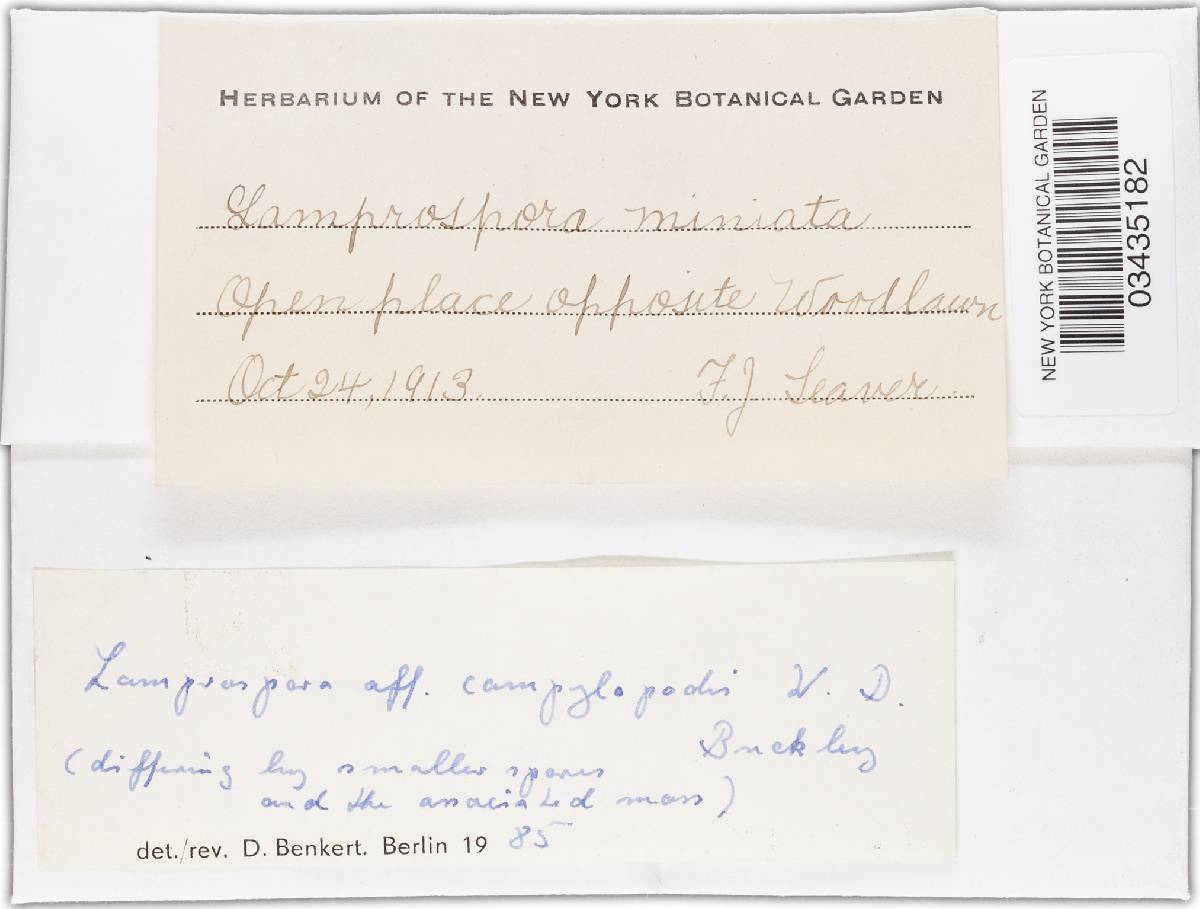 HERBARIUM OF THE NEW YORK BOTANICAL GARDEN
Lamprospora miniata
Open place opposite Woodlawn
Oct 24, 1913. F.J Seaver
NEW YORK BOTANICAL GARDEN
03435182
Lamprospora aff. campylopodis W. D.
Buckley
(differing by smaller spores
and the associated moss)
det./rev. D. Benkert. Berlin 19 85